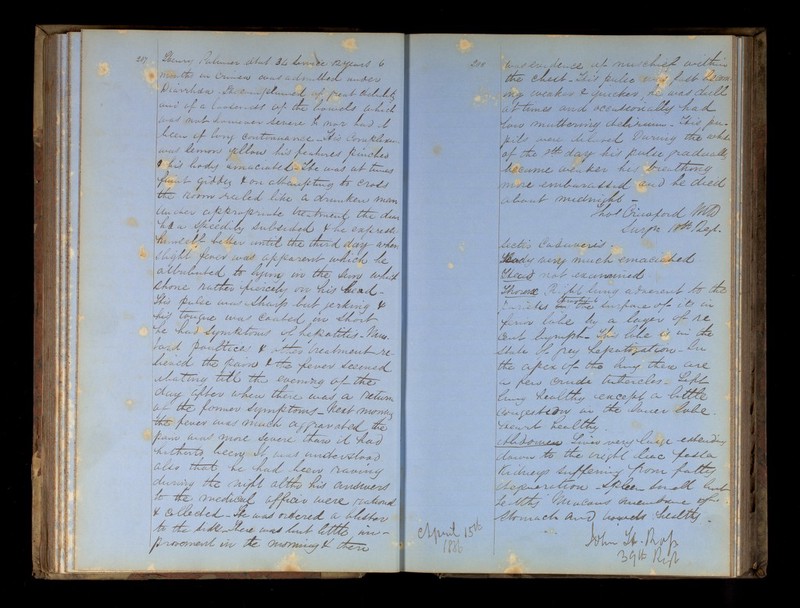 207 Henry Palmer aet 36 Service 12 years 6
months in Crimea was admitted under
Diarrhoea. He complained of great debility
and of a looseness of the bowels which
was not however severe & nor had it
been of long continuance. His Complexion
was lemon yellow his features pinched
& his body emaciated. He was at times
faint giddy & on attempting to cross
the room reeled like a drunken man
under appropriate treatment the diar
hoea speedily subsided & he expressed
himself better until the third day when
slight fever was apparent which he
attributed to lying in the sun which
shone rather fiercely on his head.
His pulse was sharp but jerking &
his tongue was coated in short
he had symptoms of hepatitis. Mus
tard poultices & other treatment re
lieved the pain & the fever seemed
abating till the evening of the
day after when there was a return
of the former symptoms. Next morning
the fever was much aggravated the
pain was more severe than it had
hitherto been. It was understood
also that he had been raving
during the night altho his answers
to the medical officer were rational
& collected. He was ordered a blister
to the side. There was but little im-
provement in the morning & there
208 was evidence of mischief within
the chest. His pulse was fast becom
ing weaker & quicker, he was dull
at times and occasionally had
low muttering delirium. His pu-
pils were dilated. During the whole
of the 9th day his pulse gradually
became weaker his breathing
more embarrassed and he died
about midnight -
Thos MD
Surgn 10th Regt.
Sectio Cadaveris
Body very much emaciated
Head not examined
Thorax Right lung adherent to the
parietes on the surface of its in
ferior lobe by a layer of re
cent lymph. The lobe is in the
state of grey hepatization. In
the apex of the lung there are
a few crude tubercles. Left
lung healthy except a little
congestion in the lower lobe.
Heart healthy.
Abdomen Liver very large extending
down to the right iliac fossa
Kidneys suffering from fatty
degeneration. Spleen small but
healthy Mucous membrane of
stomach and bowels healthy.
John H.
39th Regt
April 15th
1856